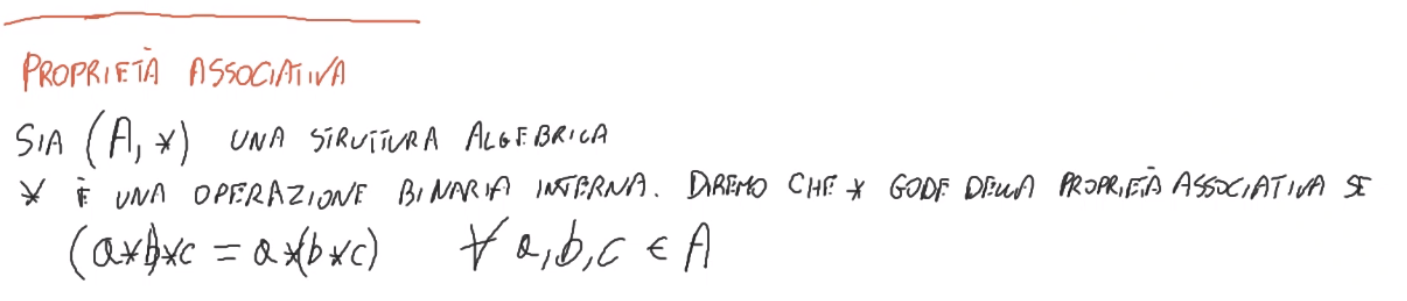 PROPRIETÀ ASSOCIATIVA
SIA (A, *) UNA STRUTTURA ALGEBRICA
* È UNA OPERAZIONE BINARIA INTERNA. DIREMO CHE * GODE DELLA PROPRIETÀ ASSOCIATIVA SE
(a*b)*c = a*(b*c) ∀ a,b,c ∈ A